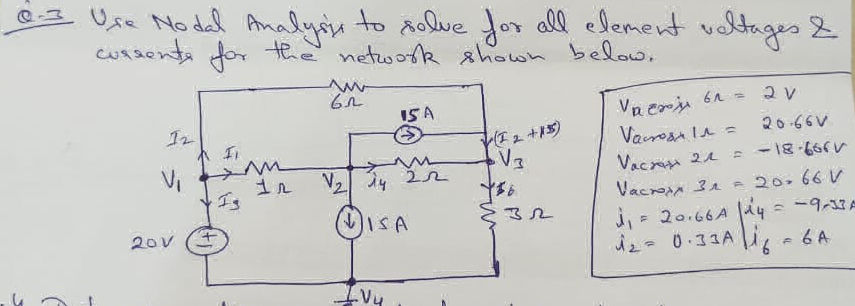 Q-3 Use Nodal Analysis to solve for all element voltages &
currents for the network shown below.
6Ω
15A
I2
I1
(I2+15)
V1
1Ω
V2
i4
2Ω
V3
I3
I6
20V
15A
3Ω
V4
Vacross 6Ω = 2V
Vacross 1Ω = 20.66V
Vacross 2Ω = -18.666V
Vacross 3Ω = 20.66V
i1 = 20.66A | i4 = -9.33A
i2 = 0.33A | i6 = 6A